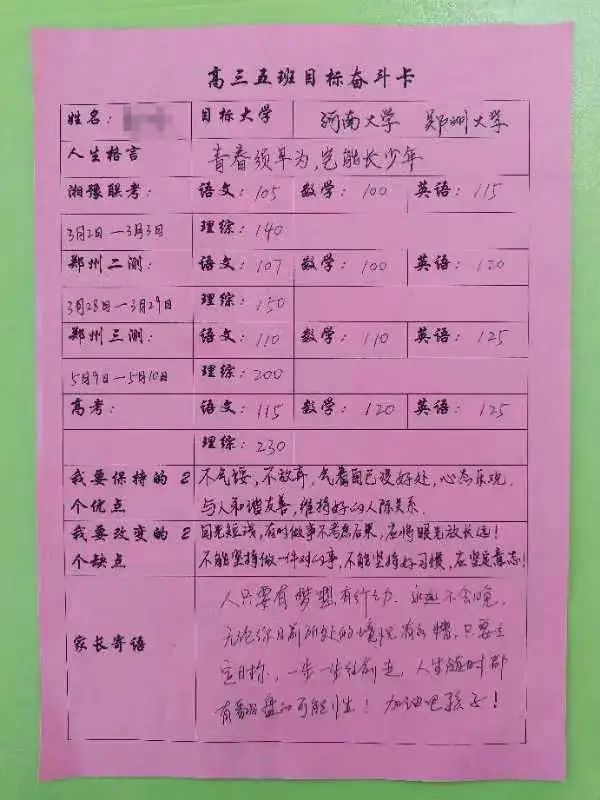 高三五班目标奋斗卡
姓名: 目标大学 河南大学 郑州大学
人生格言 青春须早为,岂能长少年
湘豫联考: 语文: 105 数学: 100 英语: 115
3月2日—3月3日 理综: 140
郑州二测: 语文: 107 数学: 100 英语: 120
3月28日—3月29日 理综: 150
郑州三测: 语文: 110 数学: 110 英语: 125
5月9日—5月10日 理综: 200
高考: 语文: 115 数学: 120 英语: 125
理综: 230
我要保持的2 不气馁,不放弃,自己,心态乐观.
个优点 与人和谐友善,维持好的人际关系.
我要改变的2 目光短浅,有时做事不考虑后果,应将眼光放长远!
个缺点 不能坚持做一件对的事,不能坚持好习惯,应坚定意志!
人只要有梦想有行动.永远不会晚.
无论你目前所处的境况有多糟,只要
家长寄语
定目标,一步一步往前走,人生随时都
有翻盘的可能! 加油吧孩子!